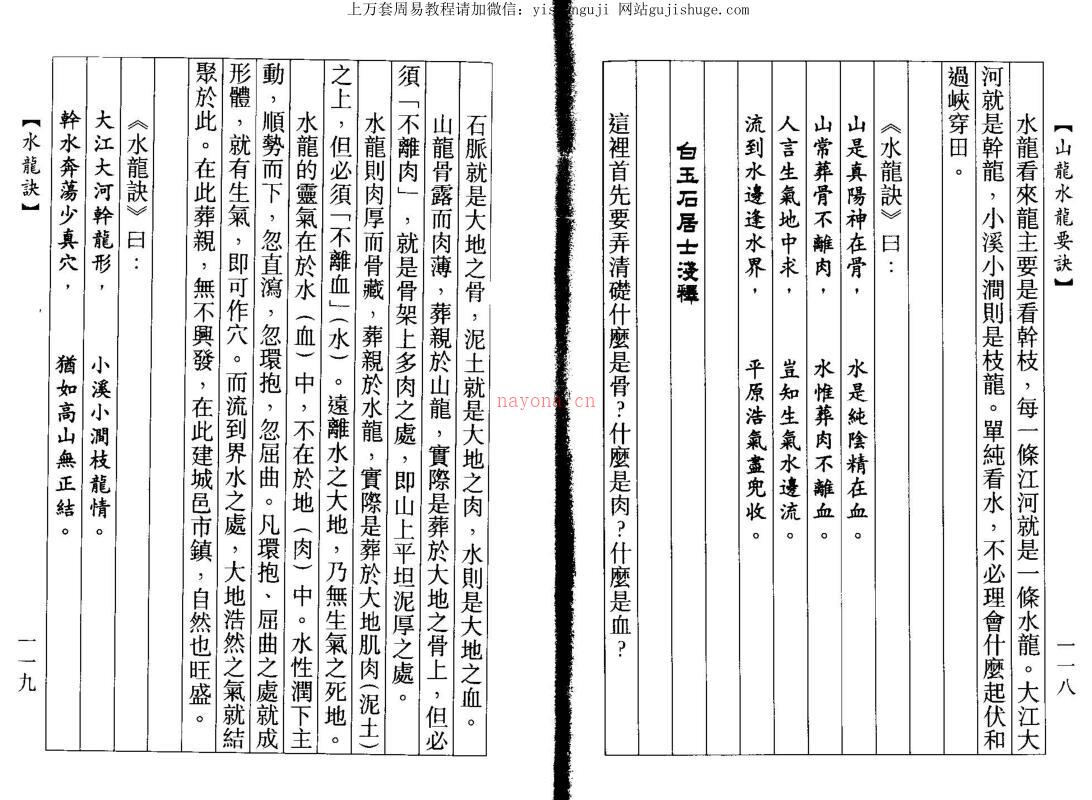 上万套周易教程请加微信：yishuguji 网站gujishuge.com
【山龍水龍要訣】
一一八
水龍看來龍主要是看幹枝，每一條江河就是一條水龍。大江大
河就是幹龍，小溪小澗則是枝龍。單純看水，不必理會什麼起伏和
過峽穿田。
《水龍訣》曰：
山是真陽神在骨，　水是純陰精在血。
山常葬骨不離肉，　水惟葬肉不離血。
人言生氣地中求，　豈知生氣水邊流。
流到水邊逢水界，　平原浩氣盡兜收。
白玉石居士淺釋
這裡首先要弄清礎什麼是骨？什麼是肉？什麼是血？
石脈就是大地之骨，泥土就是大地之肉，水則是大地之血。
山龍骨露而肉薄，葬親於山龍，實際是葬於大地之骨上，但必
須「不離肉」，就是骨架上多肉之處，即山上平坦泥厚之處。
水龍則肉厚而骨藏，葬親於水龍，實際是葬於大地肌肉(泥土)
之上，但必須「不離血」(水)。遠離水之大地，乃無生氣之死地。
水龍的靈氣在於水(血)中，不在於地(肉)中。水性潤下主
動，順勢而下，忽直瀉，忽環抱，忽屈曲。凡環抱、屈曲之處就成
形體，就有生氣，即可作穴。而流到界水之處，大地浩然之氣就結
聚於此。在此葬親，無不興發，在此建城邑市鎮，自然也旺盛。
《水龍訣》曰：
大江大河幹龍形，　小溪小澗枝龍情。
幹水奔蕩少真穴，　猶如高山無正結。
【水龍訣】
一一九
nayona.cn